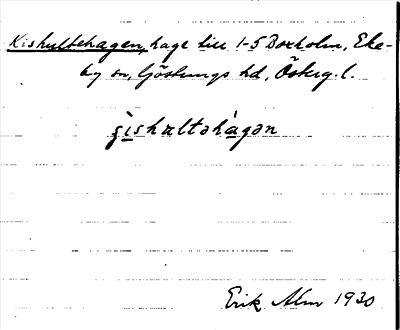 Kishultehagen, hage till 1-5 Boxholm, Eke-
by sn, Göstrings hd, Österg. l.
ʃìshultəhàgən
Erik Alm 1930